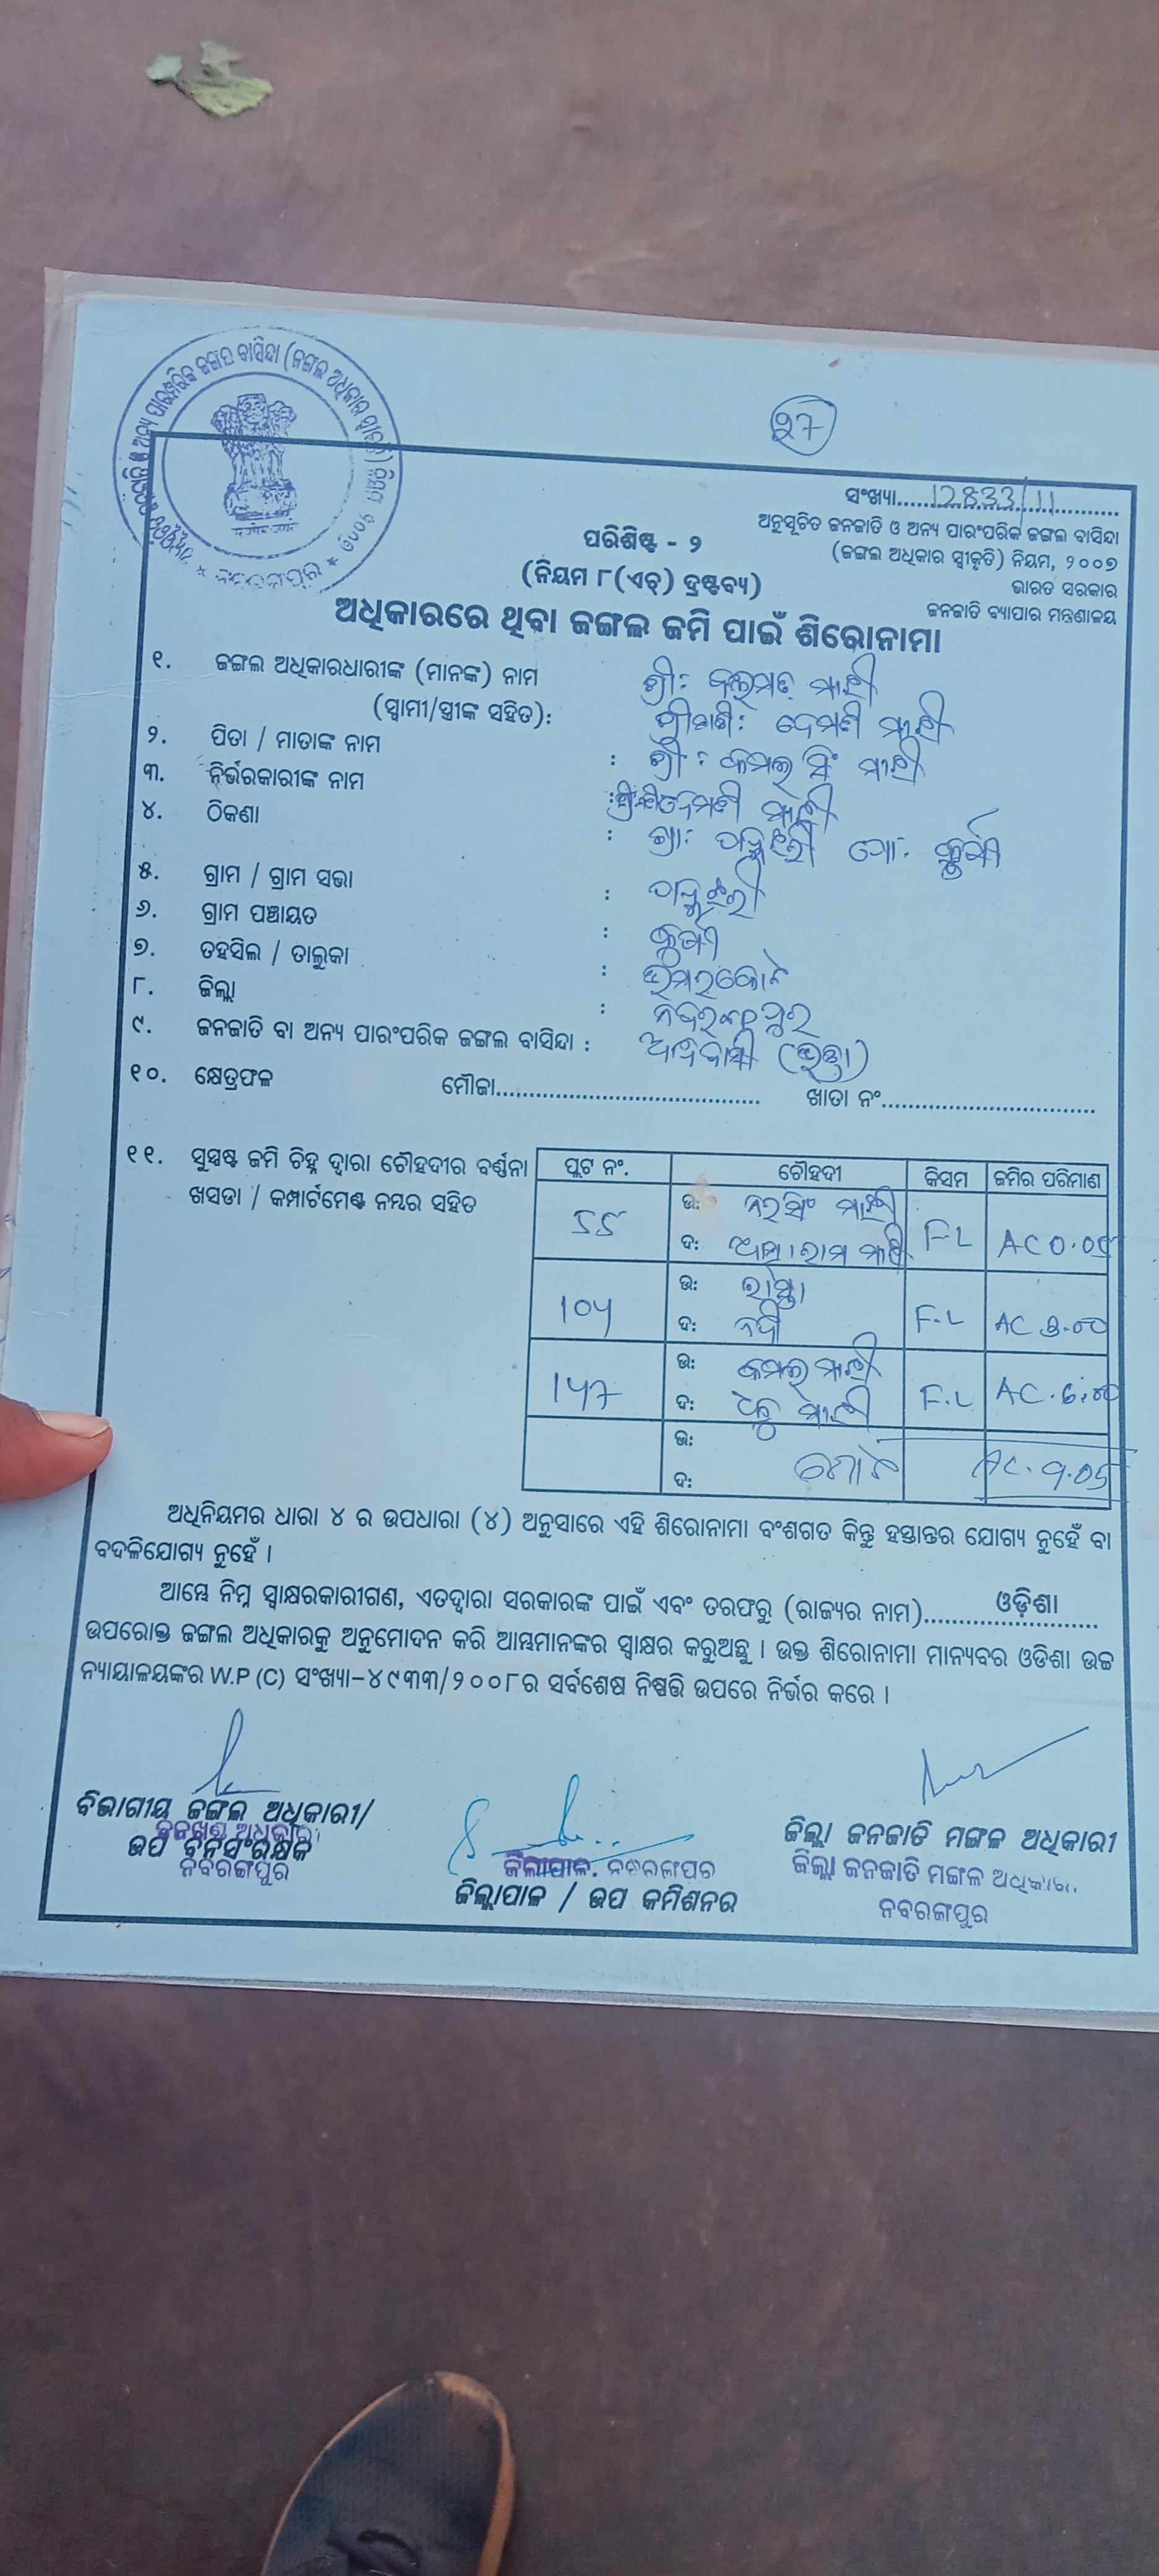 ୨7
ସଂଖ୍ୟା.....12833/11.....
ଅନୁସୂଚିତ ଜନଜାତି ଓ ଅନ୍ୟ ପାରଂପରିକ ଜଙ୍ଗଲ ବାସିନ୍ଦା
(ଜଙ୍ଗଲ ଅଧିକାର ସ୍ୱୀକୃତି) ନିୟମ, ୨୦୦୭
ଭାରତ ସରକାର
ଜନଜାତି ବ୍ୟାପାର ମନ୍ତ୍ରଣାଳୟ
ପରିଶିଷ୍ଟ - ୨
(ନିୟମ ୮(ଏଚ୍) ଦ୍ରଷ୍ଟବ୍ୟ)
ଅଧିକାରରେ ଥିବା ଜଙ୍ଗଲ ଜମି ପାଇଁ ଶିରୋନାମା
୧. ଜଙ୍ଗଲ ଅଧିକାରଧାରୀଙ୍କ (ମାନଙ୍କ) ନାମ ଶ୍ରୀ: ମାଝୀ
(ସ୍ୱାମୀ/ସ୍ତ୍ରୀଙ୍କ ସହିତ): ଶ୍ରୀମତୀ: ମାଝୀ
୨. ପିତା / ମାତାଙ୍କ ନାମ : ଶ୍ରୀ: ସିଂ ମାଝୀ
୩. ନିର୍ଭରକାରୀଙ୍କ ନାମ : ମାଝୀ
୪. ଠିକଣା : ଗ୍ରା: ପୋ:
୫. ଗ୍ରାମ / ଗ୍ରାମ ସଭା :
୬. ଗ୍ରାମ ପଞ୍ଚାୟତ :
୭. ତହସିଲ / ତାଲୁକା : ଉମରକୋଟ
୮. ଜିଲ୍ଲା : ନବରଙ୍ଗପୁର
୯. ଜନଜାତି ବା ଅନ୍ୟ ପାରଂପରିକ ଜଙ୍ଗଲ ବାସିନ୍ଦା : ଆଦିବାସୀ
୧୦. କ୍ଷେତ୍ରଫଳ ମୌଜା..................... ଖାତା ନଂ.....................
୧୧. ସୁସ୍ପଷ୍ଟ ଜମି ଚିହ୍ନ ଦ୍ୱାରା ଚୌହଦୀର ବର୍ଣ୍ଣନା
ଖସଡା / କମ୍ପାର୍ଟମେଣ୍ଟ ନମ୍ବର ସହିତ
ପ୍ଲଟ ନଂ. ଚୌହଦୀ କିସମ ଜମିର ପରିମାଣ
55 ଉ: ନରସିଂ ମାଝୀ F.L AC 0.05
ଦ: ମାଝୀ
104 ଉ: ରାସ୍ତା F.L AC 3.00
ଦ: ନଦୀ
147 ଉ: ମାଝୀ F.L AC.6.00
ଦ: ମାଝୀ
ଉ:
ଦ: ମୋଟ AC.9.05
ଅଧିନିୟମର ଧାରା ୪ ର ଉପଧାରା (୪) ଅନୁସାରେ ଏହି ଶିରୋନାମା ବଂଶଗତ କିନ୍ତୁ ହସ୍ତାନ୍ତର ଯୋଗ୍ୟ ନୁହେଁ ବା
ବଦଳିଯୋଗ୍ୟ ନୁହେଁ ।
ଆମ୍ଭେ ନିମ୍ନ ସ୍ୱାକ୍ଷରକାରୀଗଣ, ଏତଦ୍ୱାରା ସରକାରଙ୍କ ପାଇଁ ଏବଂ ତରଫରୁ (ରାଜ୍ୟର ନାମ).....ଓଡ଼ିଶା.....
ଉପରୋକ୍ତ ଜଙ୍ଗଲ ଅଧିକାରକୁ ଅନୁମୋଦନ କରି ଆମ୍ଭମାନଙ୍କର ସ୍ୱାକ୍ଷର କରୁଅଛୁ । ଉକ୍ତ ଶିରୋନାମା ମାନ୍ୟବର ଓଡିଶା ଉଚ୍ଚ
ନ୍ୟାୟାଳୟଙ୍କର W.P (C) ସଂଖ୍ୟା-୪୯୩୩/୨୦୦୮ର ସର୍ବଶେଷ ନିଷ୍ପତ୍ତି ଉପରେ ନିର୍ଭର କରେ ।
ବିଭାଗୀୟ ଜଙ୍ଗଲ ଅଧିକାରୀ/
ବନଖଣ୍ଡ ଅଧିକାରୀ
ଉପ ବନସଂରକ୍ଷକ
ନବରଙ୍ଗପୁର
ଜିଲ୍ଲାପାଳ, ନବରଙ୍ଗପୁର
ଜିଲ୍ଲାପାଳ / ଉପ କମିଶନର
ଜିଲ୍ଲା ଜନଜାତି ମଙ୍ଗଳ ଅଧିକାରୀ
ଜିଲ୍ଲା ଜନଜାତି ମଙ୍ଗଳ ଅଧିକାରୀ
ନବରଙ୍ଗପୁର